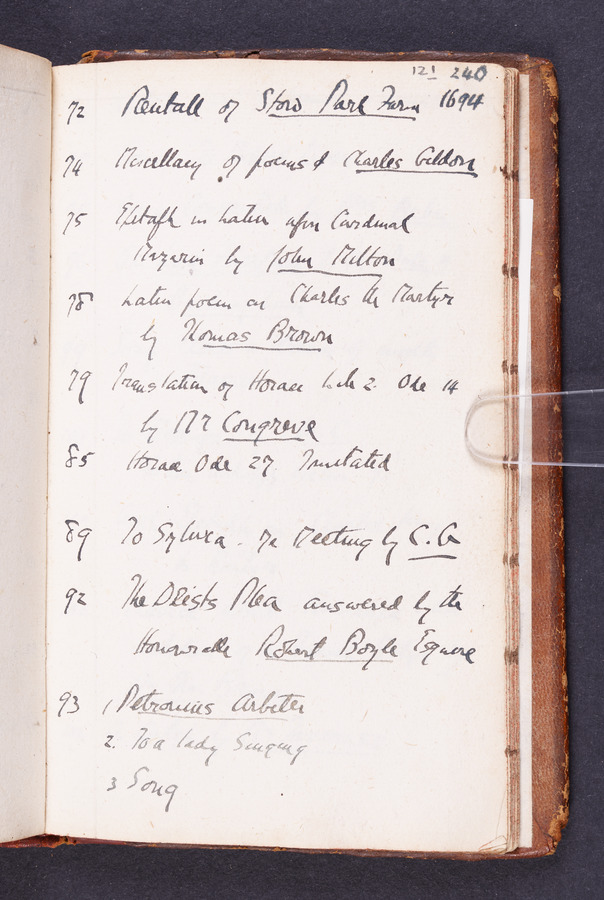 121 240
72 Rentall of Stow Park Farm 1694
74 Miscellany of poems & Charles Gildon
75 Epitaph in Latin upon Cardinal
Mazarin by John Milton
78 Latin poem on Charles the Martyr
by Thomas Brown
79 Translation of Horace Lib 2. Ode 14
by Mr Congreve
85 Horace Ode 27 Imitated
89 To Sylvia. The Meeting by C. G
92 The Deists Plea answered by the
Honourable Robert Boyle Esquire
93 1 Petronius Arbiter
2. To a lady Singing
3 Song